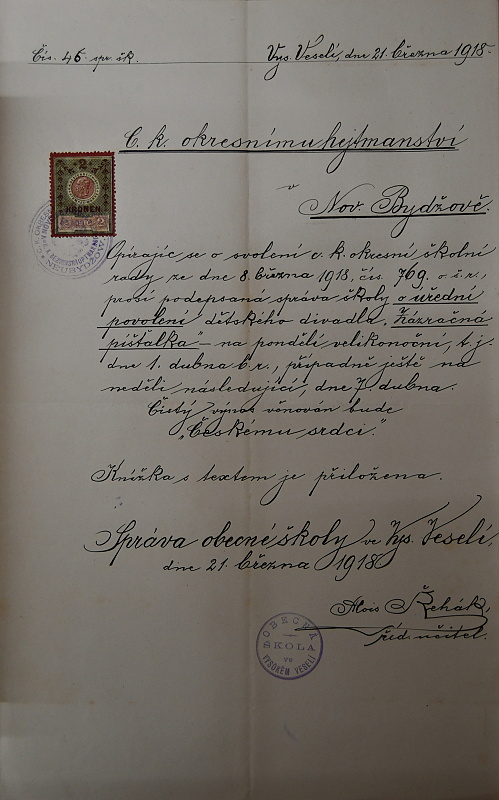 Čís. 46 spr. šk.
Vys. Veselí, dne 21. března 1918.
C. k. okresnímu hejtmanství
v
Nov. Bydžově.
2
KRONEN
Opírajíc se o svolení c. k. okresní školní
rady ze dne 8. března 1918, čís. 769. o. š. r.,
prosí podepsaná správa školy o úřední
povolení dětského divadla „Zázračná
píšťalka" – na pondělí velikonoční, t. j.
dne 1. dubna b. r., případně ještě na
neděli následující, dne 7. dubna.
Čistý výnos věnován bude
„Českému srdci."
Knížka s textem je přiložena.
Správa obecné školy ve Vys. Veselí,
dne 21. března 1918
Alois Řehák,
říd. učitel.
OBECNÁ
ŠKOLA
ve
VYSOKÉM VESELÍ